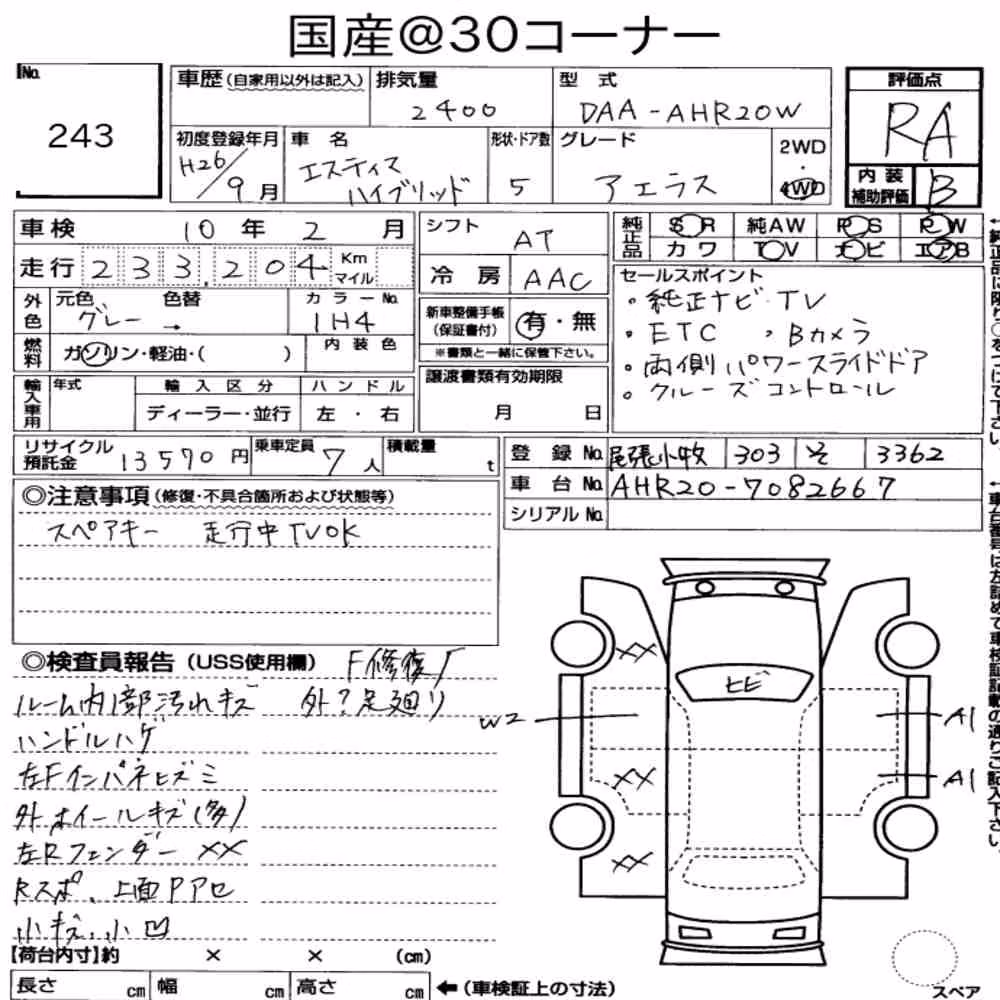 国産@30コーナー
No. 243
車歴(自家用以外は記入) 排気量 2400 型式 DAA-AHR20W 評価点 RA
初度登録年月 H26/9月 車名 エスティマ ハイブリッド 形状・ドア数 5 グレード アエラス 2WD・4WD 内装補助評価 B
車検 10年2月 シフト AT 純正品 SR 純AW PS PW
走行 233,204 Km マイル 冷房 AAC カワ TV ナビ エアB
外色 元色 グレー → 色替 カラーNo. 1H4 新車整備手帳(保証書付) 有・無 セールスポイント
燃料 ガソリン・軽油・( ) 内装色 ※書類と一緒に保管下さい。 ・純正ナビ・TV
・ETC ・Bカメラ
・両側パワースライドドア
・クルーズコントロール
輸入車用 年式 輸入区分 ディーラー・並行 ハンドル 左・右 譲渡書類有効期限 月 日
リサイクル預託金 13570円 乗車定員 7人 積載量 t 登録No. 尾張小牧 303 そ 3362
車台No. AHR20-7082667
シリアルNo.
◎注意事項(修復・不具合箇所および状態等)
スペアキー 走行中TVOK
◎検査員報告(USS使用欄) F修復
ルーム内部汚れキズ 外?足廻り
ハンドルハゲ
左Fインパネヒズミ
外ホイールキズ(多)
左Rフェンダー XX
Rスポ、上面Pアセ
小キズ、小凹
XX
ヒビ
W2 A1
XX A1
XX
【荷台内寸】約 × × (cm)
長さ cm 幅 cm 高さ cm ←(車検証上の寸法)
スペア
←純正品に限り○をつけて下さい。
←車台番号は左詰めで車検証記載の通りご記入下さい。